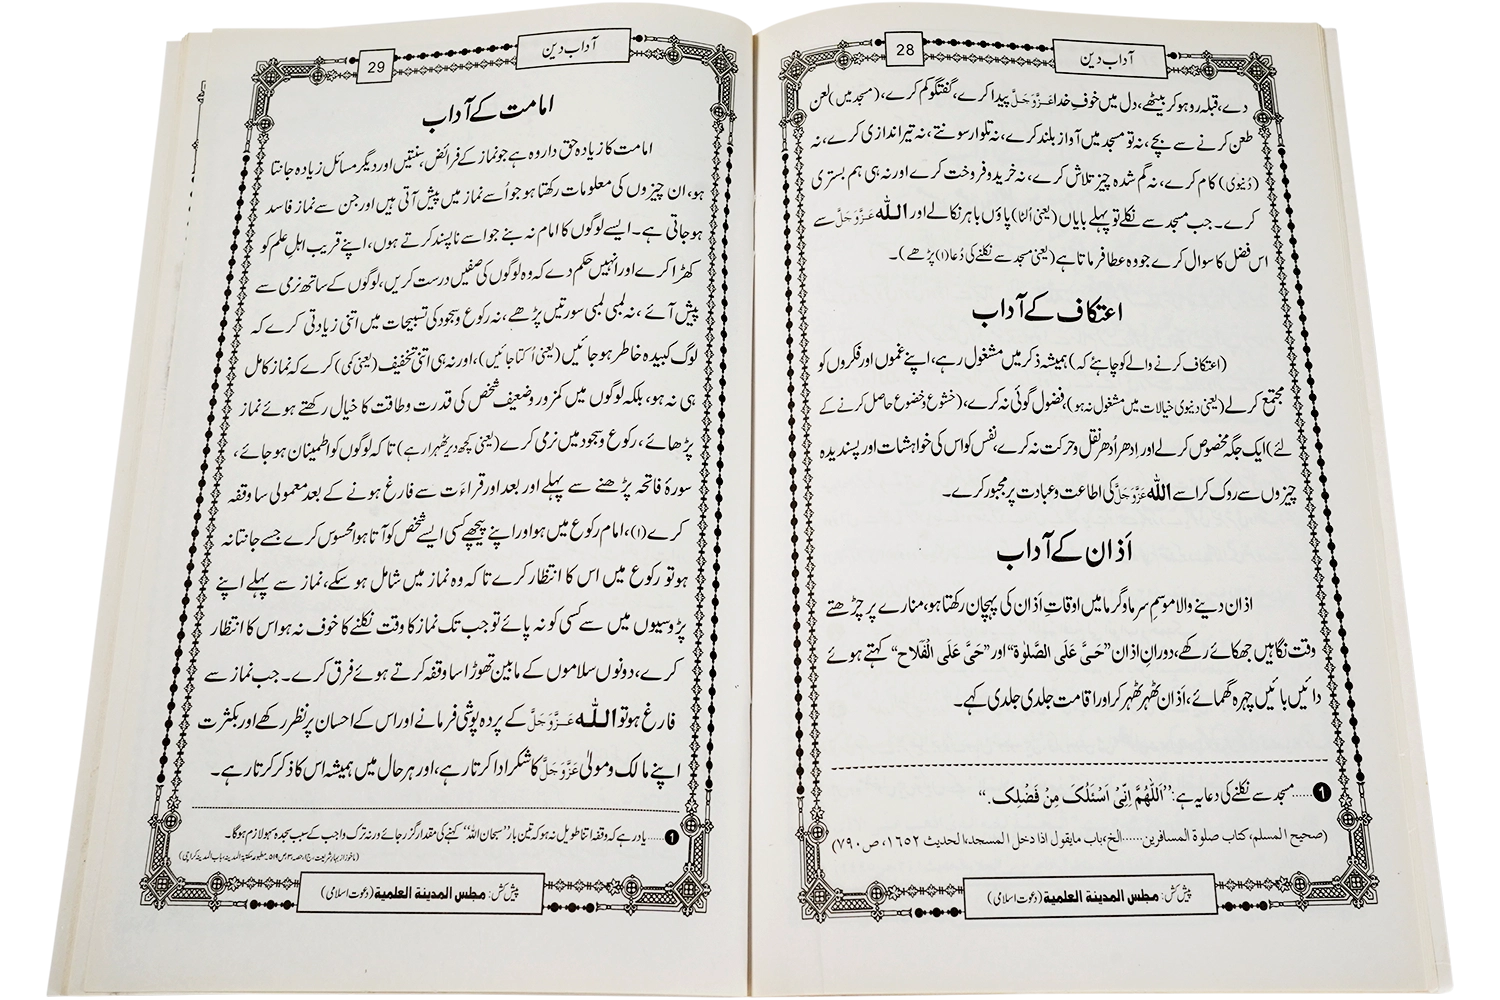 آداب دین
28
دے، قبلہ رو ہو کر بیٹھے، دل میں خوفِ خدا عَزَّوَجَلَّ پیدا کرے، گفتگو کم کرے، (مسجد میں) لعن
طعن کرنے سے بچے، نہ تو مسجد میں آواز بلند کرے، نہ تلوار سونتے، نہ تیر اندازی کرے، نہ
(دُنیوی) کام کرے، نہ گم شدہ چیز تلاش کرے، نہ خرید و فروخت کرے اور نہ ہی ہم بستری
کرے۔ جب مسجد سے نکلے تو پہلے بایاں (یعنی اُلٹا) پاؤں باہر نکالے اور اللہ عَزَّوَجَلَّ سے
اس فضل کا سوال کرے جو وہ عطا فرماتا ہے (یعنی مسجد سے نکلنے کی دُعا (۱) پڑھے)۔
اعتکاف کے آداب
(اعتکاف کرنے والے کو چاہئے کہ) ہمیشہ ذکر میں مشغول رہے، اپنے غموں اور فکروں کو
مجتمع کر لے (یعنی دنیوی خیالات میں مشغول نہ ہو)، فضول گوئی نہ کرے، (خشوع و خضوع حاصل کرنے کے
لئے) ایک جگہ مخصوص کر لے اور اِدھر اُدھر نقل و حرکت نہ کرے، نفس کو اس کی خواہشات اور پسندیدہ
چیزوں سے روک کر اسے اللہ عَزَّوَجَلَّ کی اطاعت و عبادت پر مجبور کرے۔
اَذان کے آداب
اذان دینے والا موسمِ سرما و گرما میں اوقاتِ اَذان کی پہچان رکھتا ہو، منارے پر چڑھتے
وقت نگاہیں جھکائے رکھے، دورانِ اذان ”حَیَّ عَلَی الصَّلٰوۃ“ اور ”حَیَّ عَلَی الْفَلَاح“ کہتے ہوئے
دائیں بائیں چہرہ گھمائے، اَذان ٹھہر ٹھہر کر اور اقامت جلدی جلدی کہے۔
1.....مسجد سے نکلنے کی دعا یہ ہے: ”اَللّٰھُمَّ اِنِّیْ اَسْئَلُکَ مِنْ فَضْلِکَ.“
(صحیح المسلم، کتاب صلوۃ المسافرین.....الخ، باب مایقول اذا دخل المسجد، الحدیث ۱۶۵۲، ص ۷۹۰)
پیش کش: مجلس المدینۃ العلمیۃ (دعوت اسلامی)
آداب دین
29
امامت کے آداب
امامت کا زیادہ حق دار وہ ہے جو نماز کے فرائض، سنتیں اور دیگر مسائل زیادہ جانتا
ہو، ان چیزوں کی معلومات رکھتا ہو جو اُسے نماز میں پیش آتی ہیں اور جن سے نماز فاسد
ہو جاتی ہے۔ ایسے لوگوں کا امام نہ بنے جو اسے ناپسند کرتے ہوں، اپنے قریب اہلِ علم کو
کھڑا کرے اور انہیں حکم دے کہ وہ لوگوں کی صفیں درست کریں، لوگوں کے ساتھ نرمی سے
پیش آئے، نہ لمبی لمبی سورتیں پڑھے، نہ رکوع و سجود کی تسبیحات میں اتنی زیادتی کرے کہ
لوگ کبیدہ خاطر ہو جائیں (یعنی اُکتا جائیں)، اور نہ ہی اتنی تخفیف (یعنی کمی) کرے کہ نماز کامل
ہی نہ ہو، بلکہ لوگوں میں کمزور و ضعیف شخص کی قدرت و طاقت کا خیال رکھتے ہوئے نماز
پڑھائے، رکوع و سجود میں نرمی کرے (یعنی کچھ دیر ٹھہرا رہے) تاکہ لوگوں کو اطمینان ہو جائے،
سورۂ فاتحہ پڑھنے سے پہلے اور بعد اور قراءت سے فارغ ہونے کے بعد معمولی سا وقفہ
کرے (۱)، امام رکوع میں ہو اور اپنے پیچھے کسی ایسے شخص کو آتا ہوا محسوس کرے جسے جانتا نہ
ہو تو رکوع میں اس کا انتظار کرے تاکہ وہ نماز میں شامل ہو سکے، نماز سے پہلے اپنے
پڑوسیوں میں سے کسی کو نہ پائے تو جب تک نماز کا وقت نکلنے کا خوف نہ ہو اس کا انتظار
کرے، دونوں سلاموں کے مابین تھوڑا سا وقفہ کرتے ہوئے فرق کرے۔ جب نماز سے
فارغ ہو تو اللہ عَزَّوَجَلَّ کے پردہ پوشی فرمانے اور اس کے احسان پر نظر رکھے اور بکثرت
اپنے مالک و مولیٰ عَزَّوَجَلَّ کا شکر ادا کرتا رہے، اور ہر حال میں ہمیشہ اس کا ذکر کرتا رہے۔
1.....یاد رہے کہ وقفہ اتنا طویل نہ ہو کہ تین بار ”سبحان اللہ“ کہنے کی مقدار گزر جائے ورنہ ترک واجب کے سبب سجدہ سہو لازم ہو گا۔
(ماخوذ از بہار شریعت، ج۱، حصہ ۳، ص ۵۱۹۔ مطبوعہ مکتبۃ المدینہ، باب المدینہ کراچی)
پیش کش: مجلس المدینۃ العلمیۃ (دعوت اسلامی)